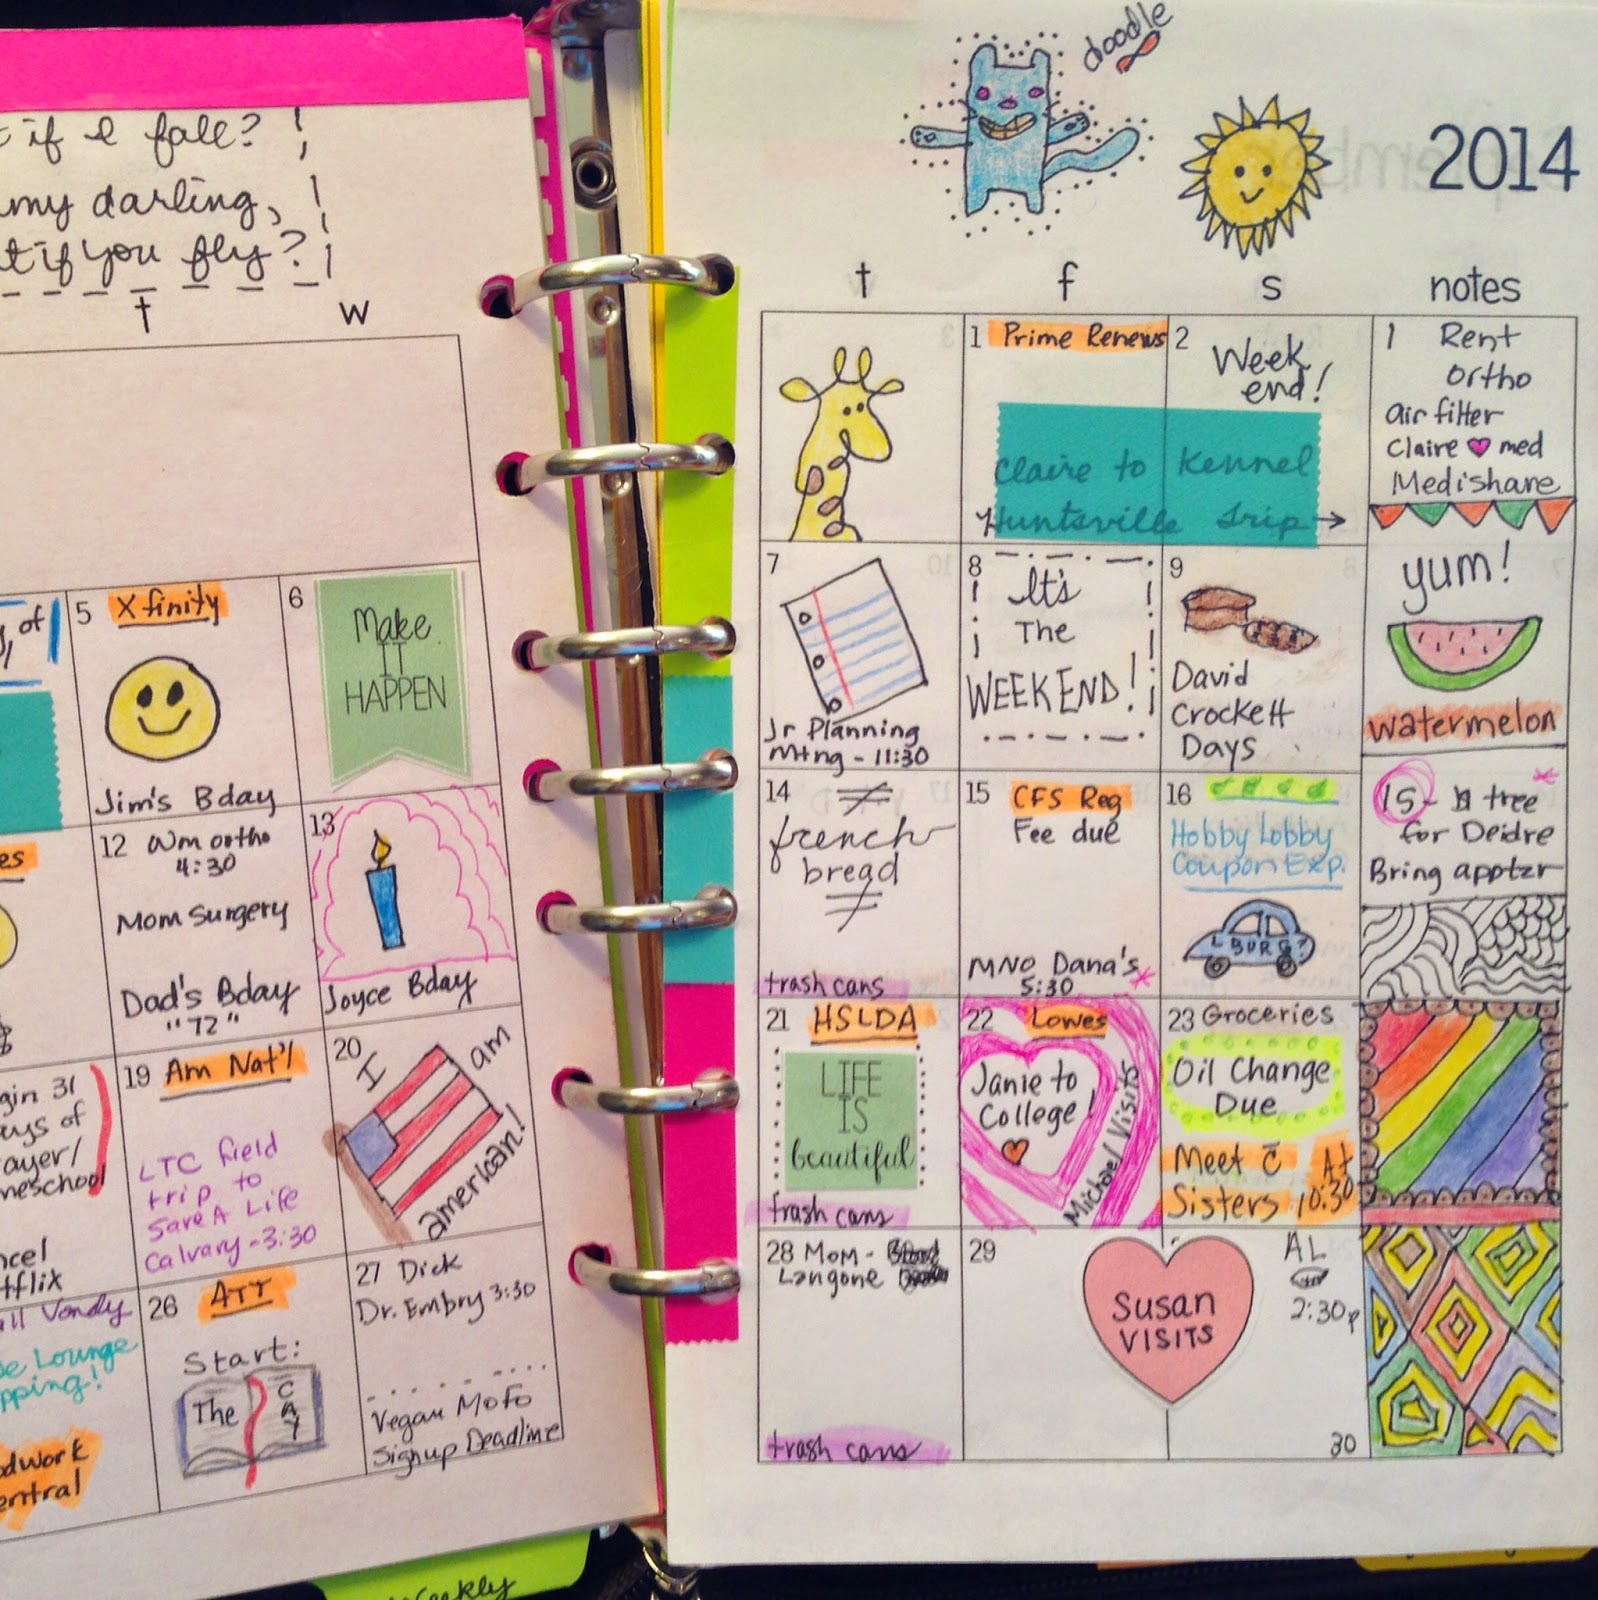 if I fall?
my darling,
if you fly?
t
w
of
5 Xfinity
Jim's Bday
6
Make
IT
HAPPEN
12 Wm ortho
4:30
Mom Surgery
Dad's Bday
"72"
13
Joyce Bday
31
of
19 Am Nat'l
LTC field
trip to
Save A Life
Calvary - 3:30
20
I am
american!
Vandy
Lounge
26 ATT
Start:
The
CAY
27 Dick
Dr. Embry 3:30
Vegan MoFo
Signup Deadline
doodle
2014
t
f
s
notes
1 Prime Renews
2
Week
end!
Claire to Kennel
Huntsville trip →
1 Rent
Ortho
air filter
Claire ♥ med
Medishare
7
Jr Planning
Mtng - 11:30
8
It's
The
WEEKEND!
9
David
Crockett
Days
yum!
watermelon
14
french
bread
trash cans
15 CFS Reg
Fee due
MNO Dana's
5:30
16
Hobby Lobby
Coupon Exp.
LBURG?
15 - tree
for Deidre
Bring apptzr
21 HSLDA
LIFE
IS
beautiful
trash cans
22 Lowes
Janie to
College!
Michael Visits
23 Groceries
Oil Change
Due
Meet c̄ At
Sisters 10:30
28 Mom -
Langone
trash cans
29
Susan
VISITS
AL
2:30p
30
Weekly